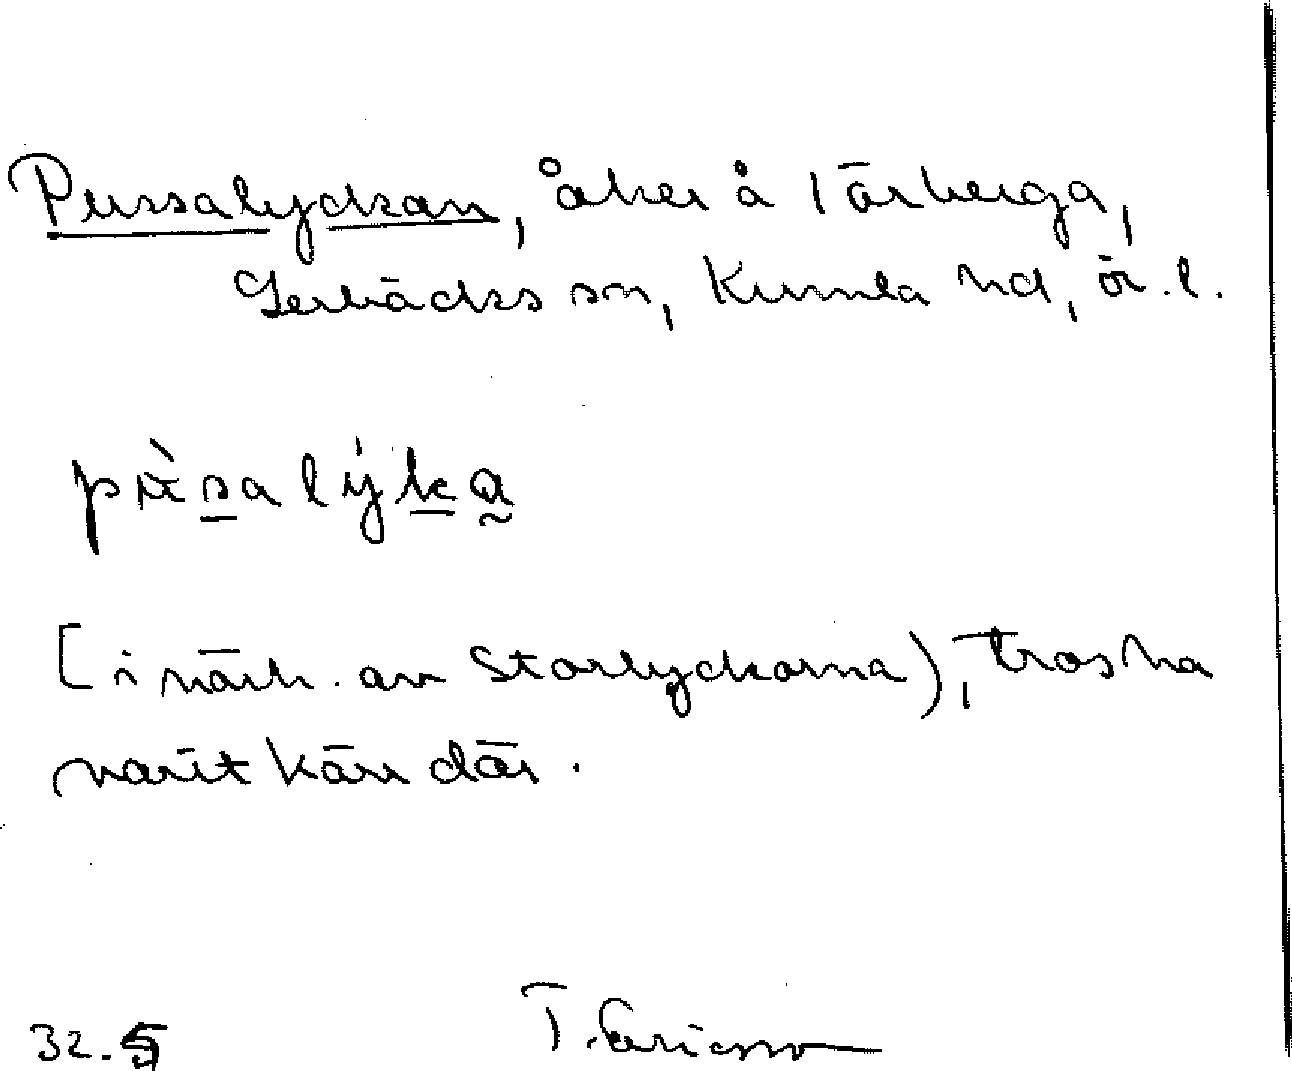 Pussalyckan, åker å Tårberga,
Gerbäcks sn, Kumla hd, ör. l.
pùsalýka
[i närh. av Storlyckorna), tros ha
varit kärr där.
32.5 T. Ericsson